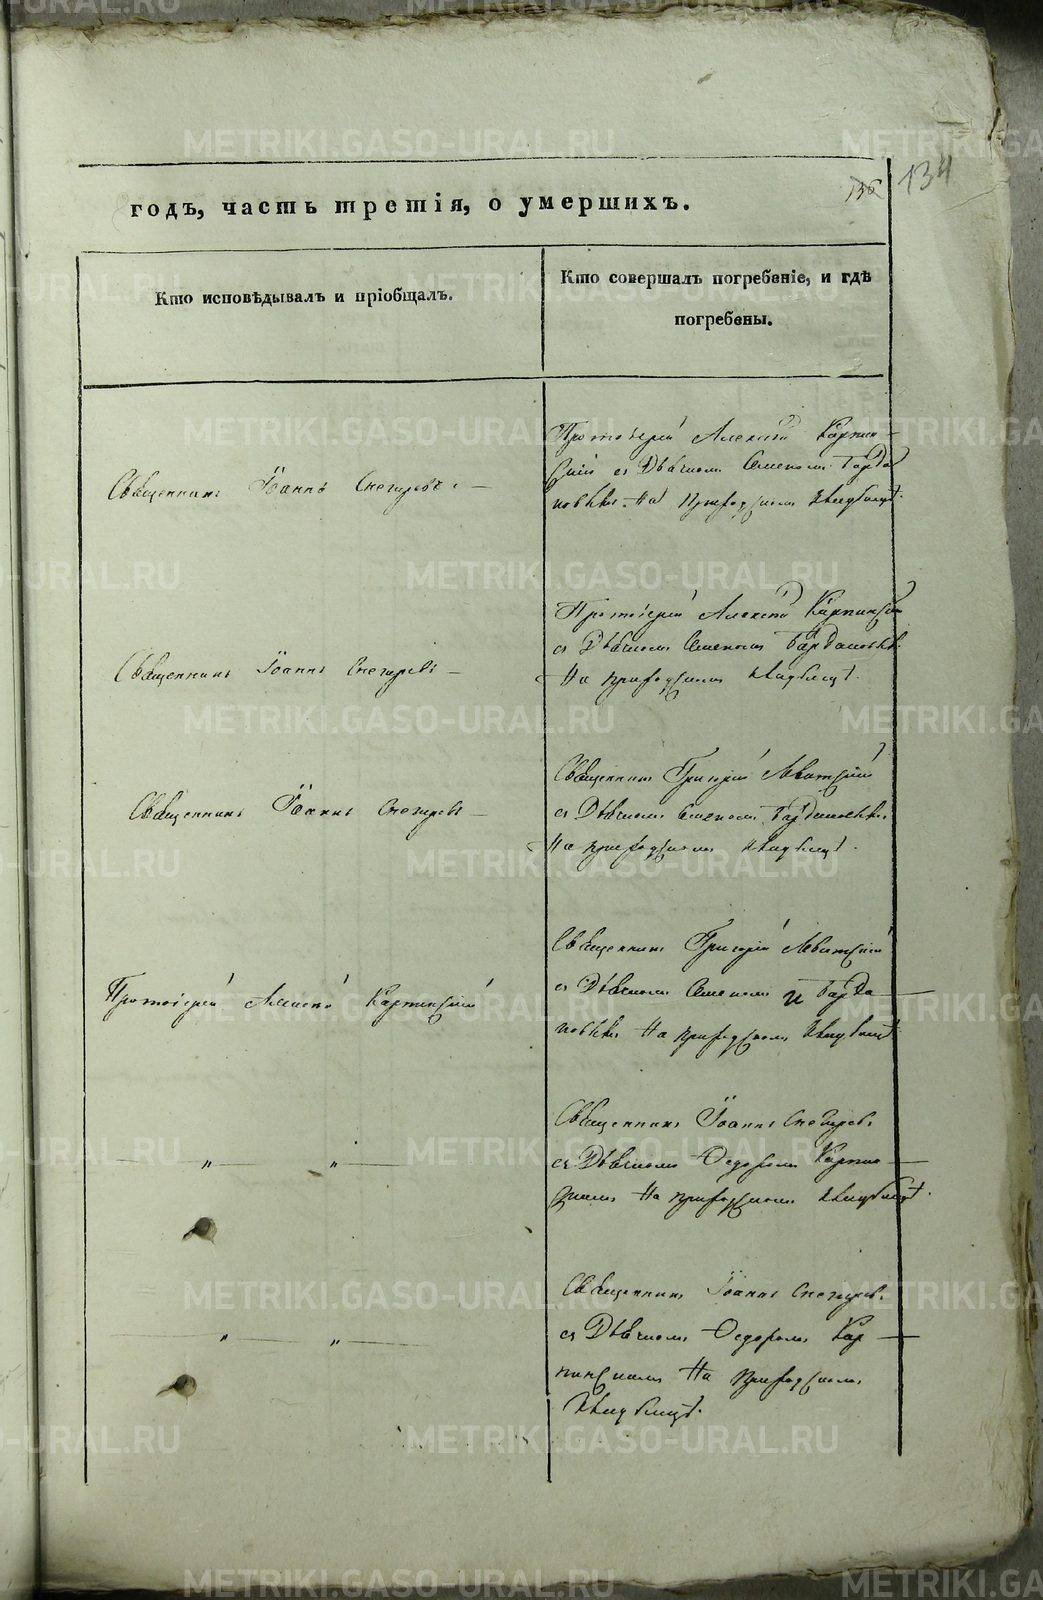 136 134
годъ, часть третія, о умершихъ.
Кто исповѣдывалъ и пріобщалъ.
Кто совершалъ погребеніе, и гдѣ
погребены.
Священникъ Іоаннъ Снегиревъ. —
Протоіерей Алексѣй Карпин-
скій съ Дьячкомъ Семеномъ
На Приходскомъ Кладбищѣ.
Священникъ Іоаннъ Снегиревъ —
Протоіерей Алексѣй Карпинскій
съ Дьячкомъ Семеномъ
На приходскомъ Кладбищѣ.
Священникъ Іоаннъ Снегиревъ —
Священникъ Григорій Левитскій
съ Дьячкомъ Семеномъ
На приходскомъ Кладбищѣ.
Протоіерей Алексѣй Карпинскій
Священникъ Григорій Левитскій
съ Дьячкомъ Семеномъ
На приходскомъ Кладбищѣ
— " — " —
Священникъ Іоаннъ Снегиревъ
съ Дьячкомъ Ѳедоромъ Карпин —
скимъ На приходскомъ Кладбищѣ.
— " — " —
Священникъ Іоаннъ Снегиревъ.
съ Дьячкомъ Ѳедоромъ Кар —
пинскимъ На Приходскомъ
Кладбищѣ.
METRIKI.GASO-URAL.RU